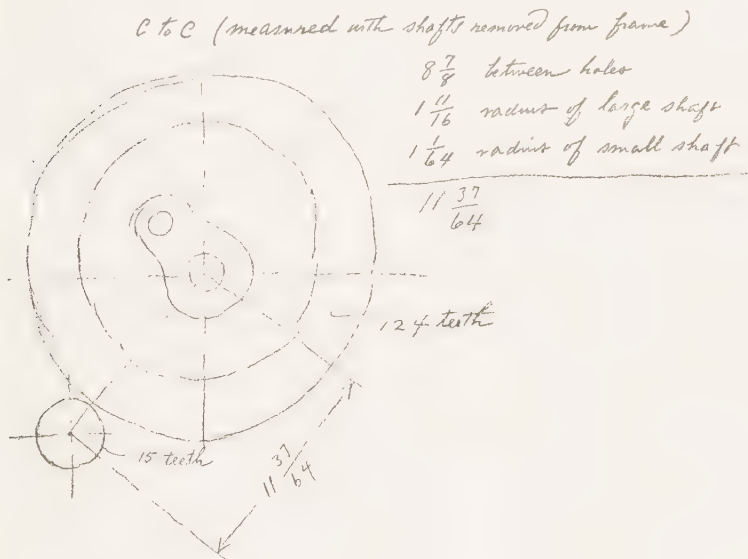 C to C (measured with shafts removed from frame)
8 7/8 between holes
1 11/16 radius of large shaft
1 1/64 radius of small shaft
11 37/64
124 teeth
15 teeth
11 37/64